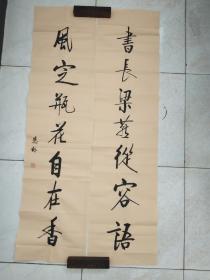 晝長梁燕從容語
風定瓶花自在香